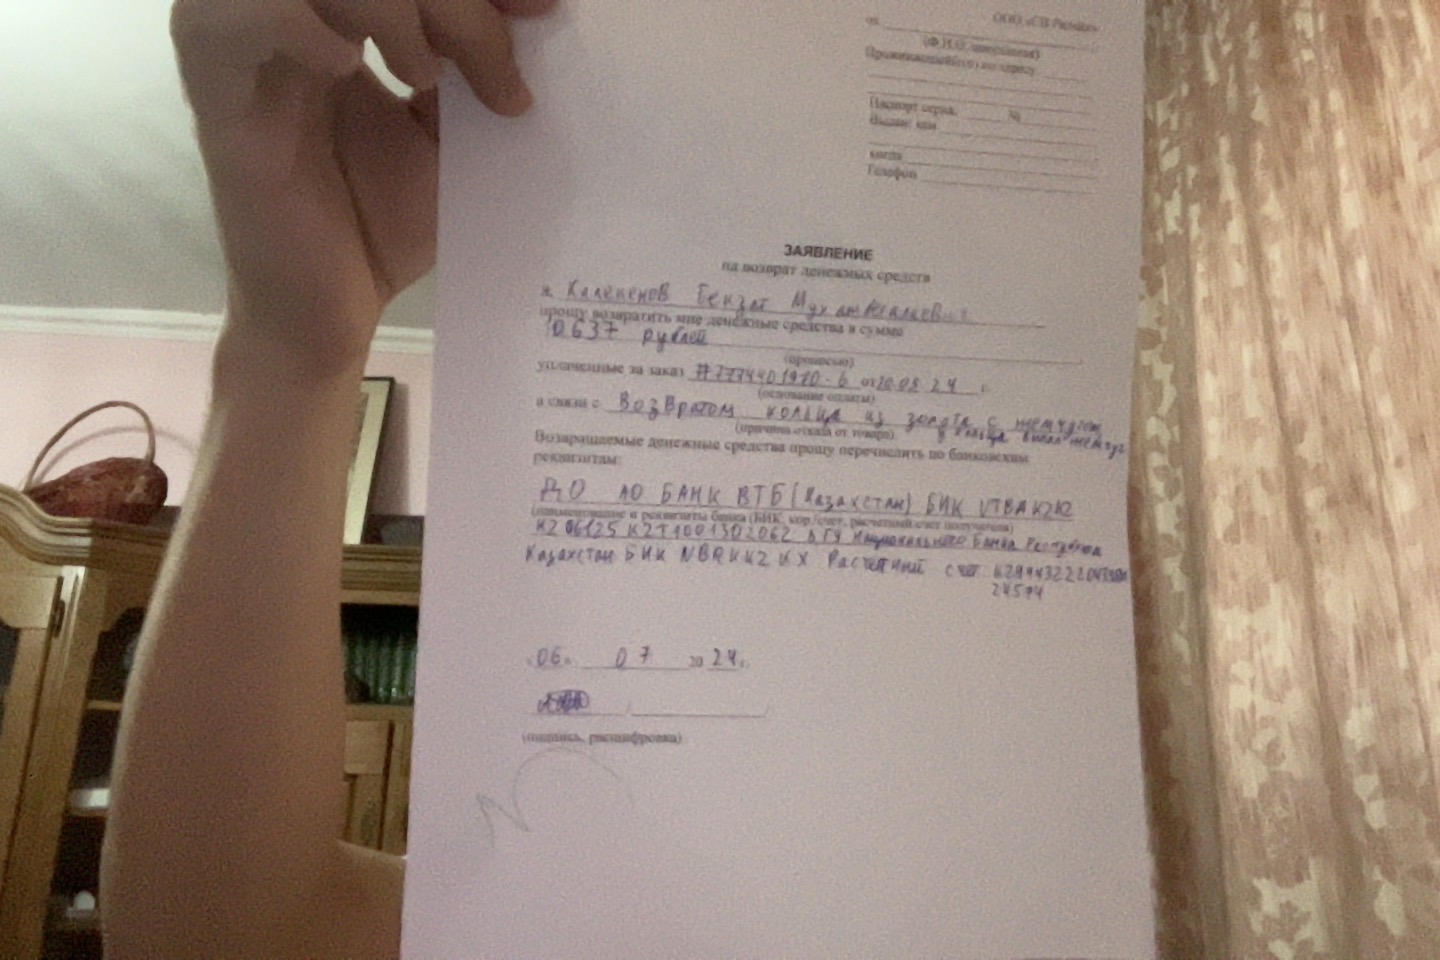 ООО «СВ
от
(Ф.И.О. заявителя)
Проживающей(го) по адресу
Паспорт серия, №
Выдан: кем
когда
Телефон
ЗАЯВЛЕНИЕ
на возврат денежных средств
я,
прошу возвратить мне денежные средства в сумме
10637 рублей
(прописью)
уплаченные за заказ от 20.05 24 г.
(основание оплаты)
в связи с Возвратом кольца из золота с жемчугом
(причина отказа от товара) у кольца выпал жемчуг
Возвращаемые денежные средства прошу перечислить по банковским
реквизитам:
ДО АО БАНК ВТБ (Казахстан) БИК VTBAKZKZ
(наименование и реквизиты банка (БИК, кор./счет, расчетный счет получателя)
KZ 06125 KZT1001302062 в ГУ Национального Банка Республики
Казахстан БИК NBRKKZ KX Расчетный счет
24574
«06» 07 20 24 г.
/ /
(подпись, расшифровка)